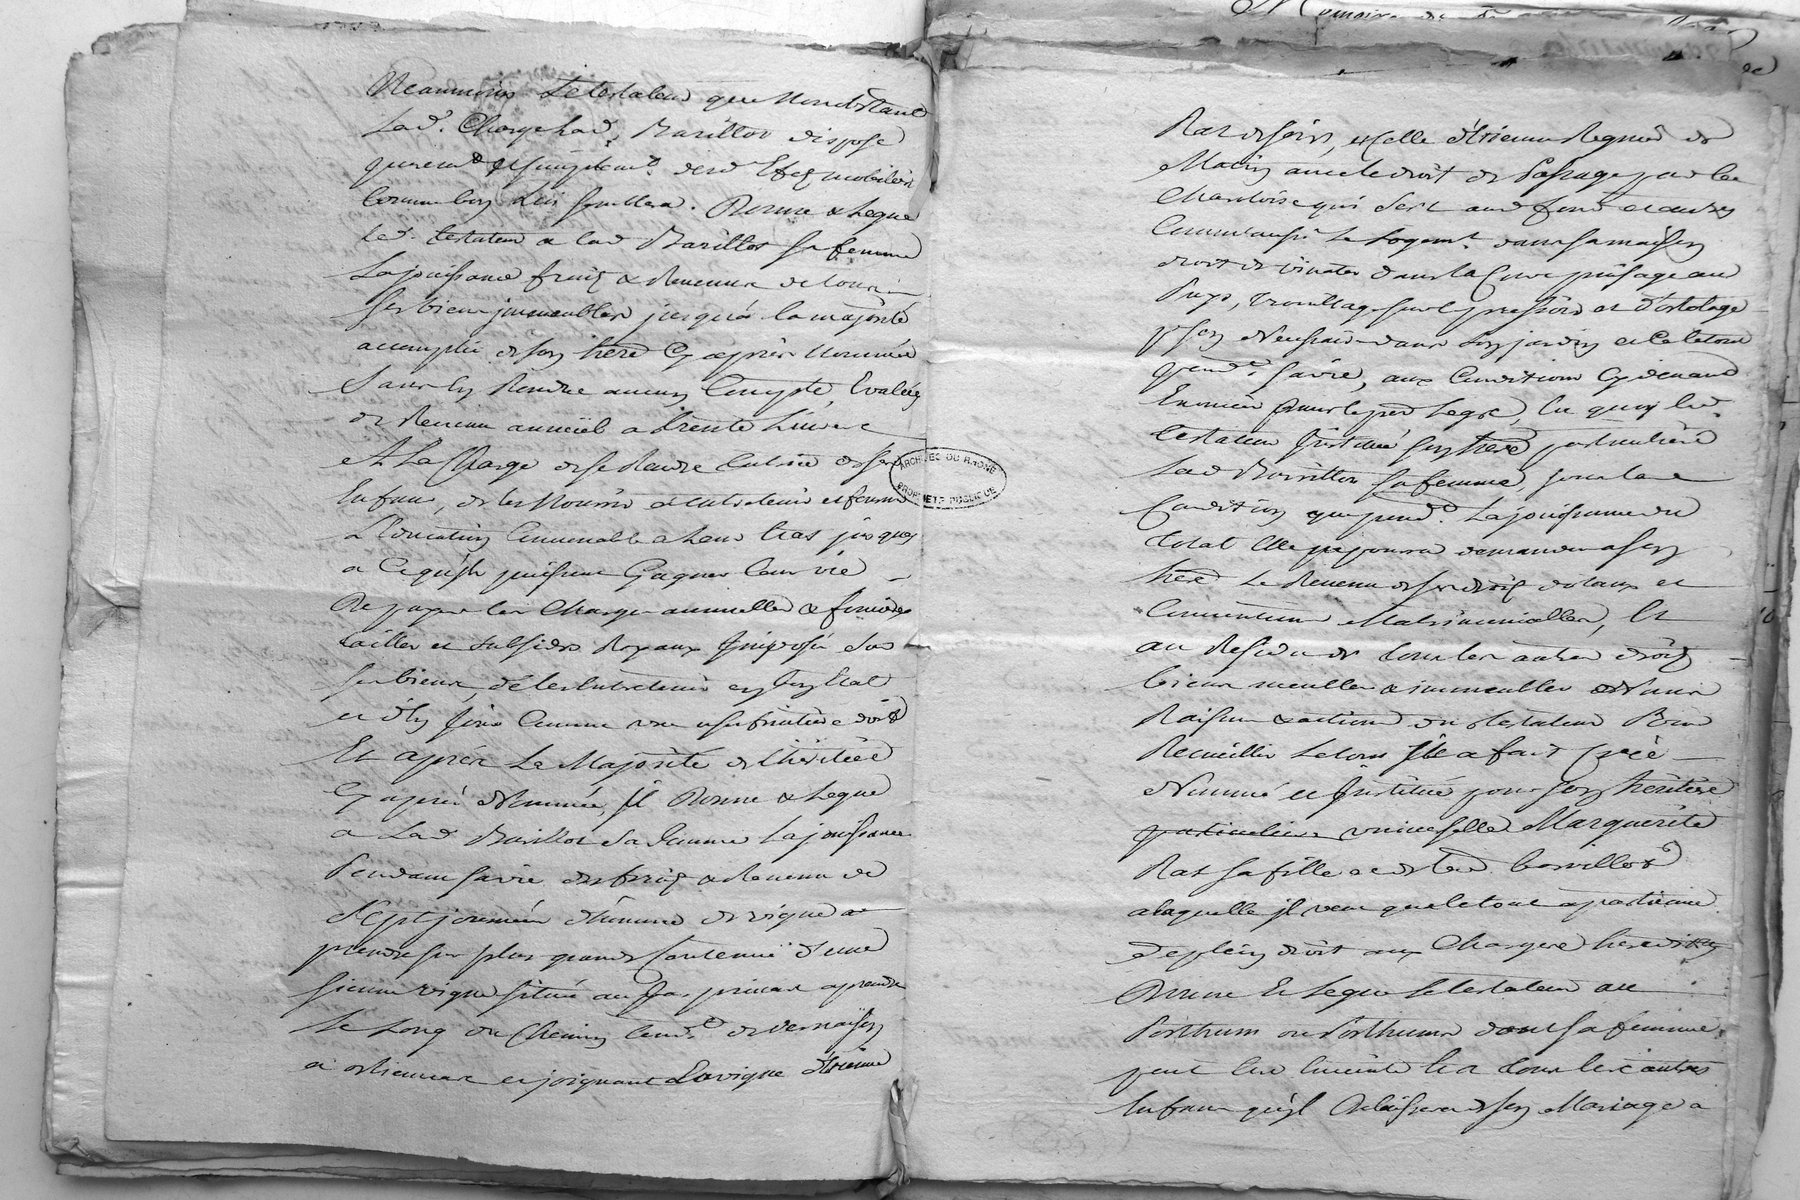 Neanmoins Le testateur que Nonobstant
Lad. Charge Lad. Barillot dispose
purem.t & simplem.t desd Effets mobiliers
Comme bon Luy semblera. Donne & Legue
led. testateur a lad Barillot sa femme
La jouissance fruits & Revenus de tous
ses biens immeubles jusqu'a la majorité
accomplie de son here Cy apres nommée
sans en Rendre aucun Compte, Evalüé
de Revenu annuel a trente Livres
A La Charge de se Rendre tutrice de ses
Enfans, de les Nourir et entretenir et fournir
L'Education Convenable a Leur Etat jusques
a Ce qu'ils puissent Gagner leur vie
De payer les Charges annuelles & foncieres
tailles et subsides Royaux Imposés sur
ses biens de les Entretenir en bon Etat
et d'en Jouir Comme une usufruitiere doit
Et apres La Majorité de l'heritiere
Cy apres Nommée, Il Donne & Legue
a Lad Barillot Sa femme La jouissance
Pendant sa vie des fruits & Revenu de
Sept journées d'homme de vigne a
prendre sur plus grande Contenue d'une
sienne vigne située au a prendre
Le Long du Chemin tend.t de Vernaison
a et joignant La vigne Etienne
Rat de soir, et Celle d'Etienne Regnié de
Matin avec le droit de Passage par la
Charoloise qui Sert aud fond et autres
Comme aussi Le Logem.t dans sa maison
droit de dans la Cuve puisage au
Puys, Treuillage sur le pressoir et d'ortolage
p.r son Necessaire dans son jardin et Ce le tout
pend.t sa vie, aux Conditions Cy devant
Enoncées pour le pred Legs, En quoy led.
testateur Institue son here particuliere
Lad Barillot sa femme, sous la
Condition que pend.t La jouissance du
total Elle ne poura demander a son
here Le Revenu de ses droits dotaux et
Conventions Matrimonialles, Et
au Residu de tous les autres droits
biens meubles & immeubles Noms
Raisons & actions dud testateur Pour
Recueillir Le tout Il a fait Créé
Nommé et Institué pour son heritiere
particuliere universelle Marguerite
Rat sa fille et de lad barillot
a laquelle il veut que le tout apartienne
de plein droit aux Charges hereditaires
Donne Et Legue Le testateur au
Posthum ou Posthume dont sa femme
peut Etre Enceinte Et a tous les autres
Enfans qu'il Delaissera de son Mariage a
ARCHIVES DU RHONE
PROPRIETE PUBLIQUE